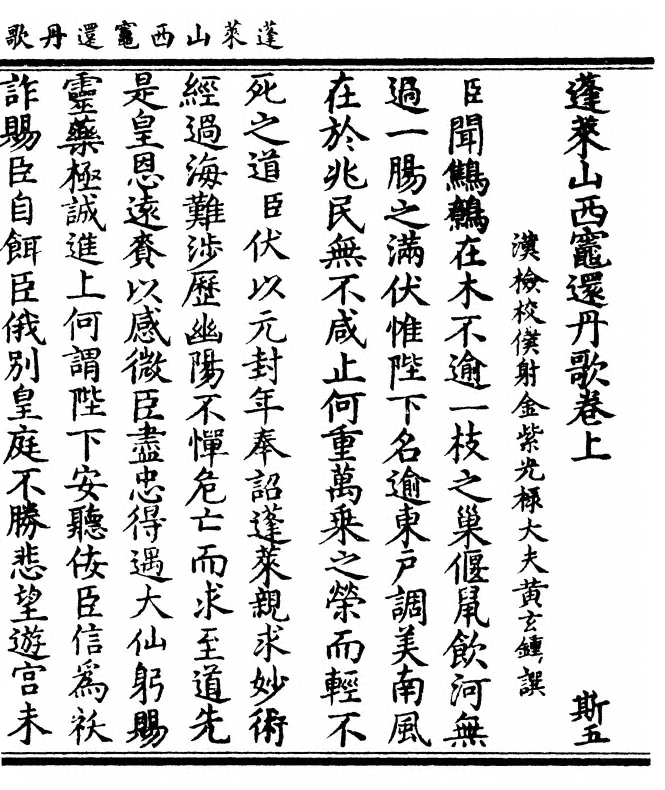 蓬萊山西竈還丹歌
蓬萊山西竈還丹歌卷上
斯五
漢檢校僕射金紫光祿大夫黃玄鍾譔
臣聞鷦鷯在木不逾一枝之巢偃鼠飲河無
過一腸之滿伏惟陛下名逾東戶調美南風
在於兆民無不咸止何重萬乘之榮而輕不
死之道臣伏以元封年奉詔蓬萊親求妙術
經過海難涉歷幽陽不憚危亡而求至道先
是皇恩遠賚以感微臣盡忠得遇大仙躬賜
靈藥極誠進上何謂陛下安聽佞臣信為祅
詐賜臣自餌臣俄別皇庭不勝悲望遊宮未